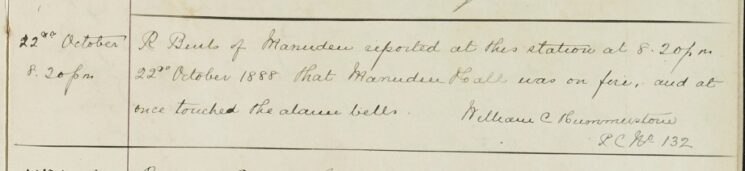 22nd October R Buils of Manuden reported at this station at 8.20pm
8.20pm 22nd October 1888 that Manuden Hall was on fire, and at
once touched the alarm bells. William C Hummerstone
P C No 132